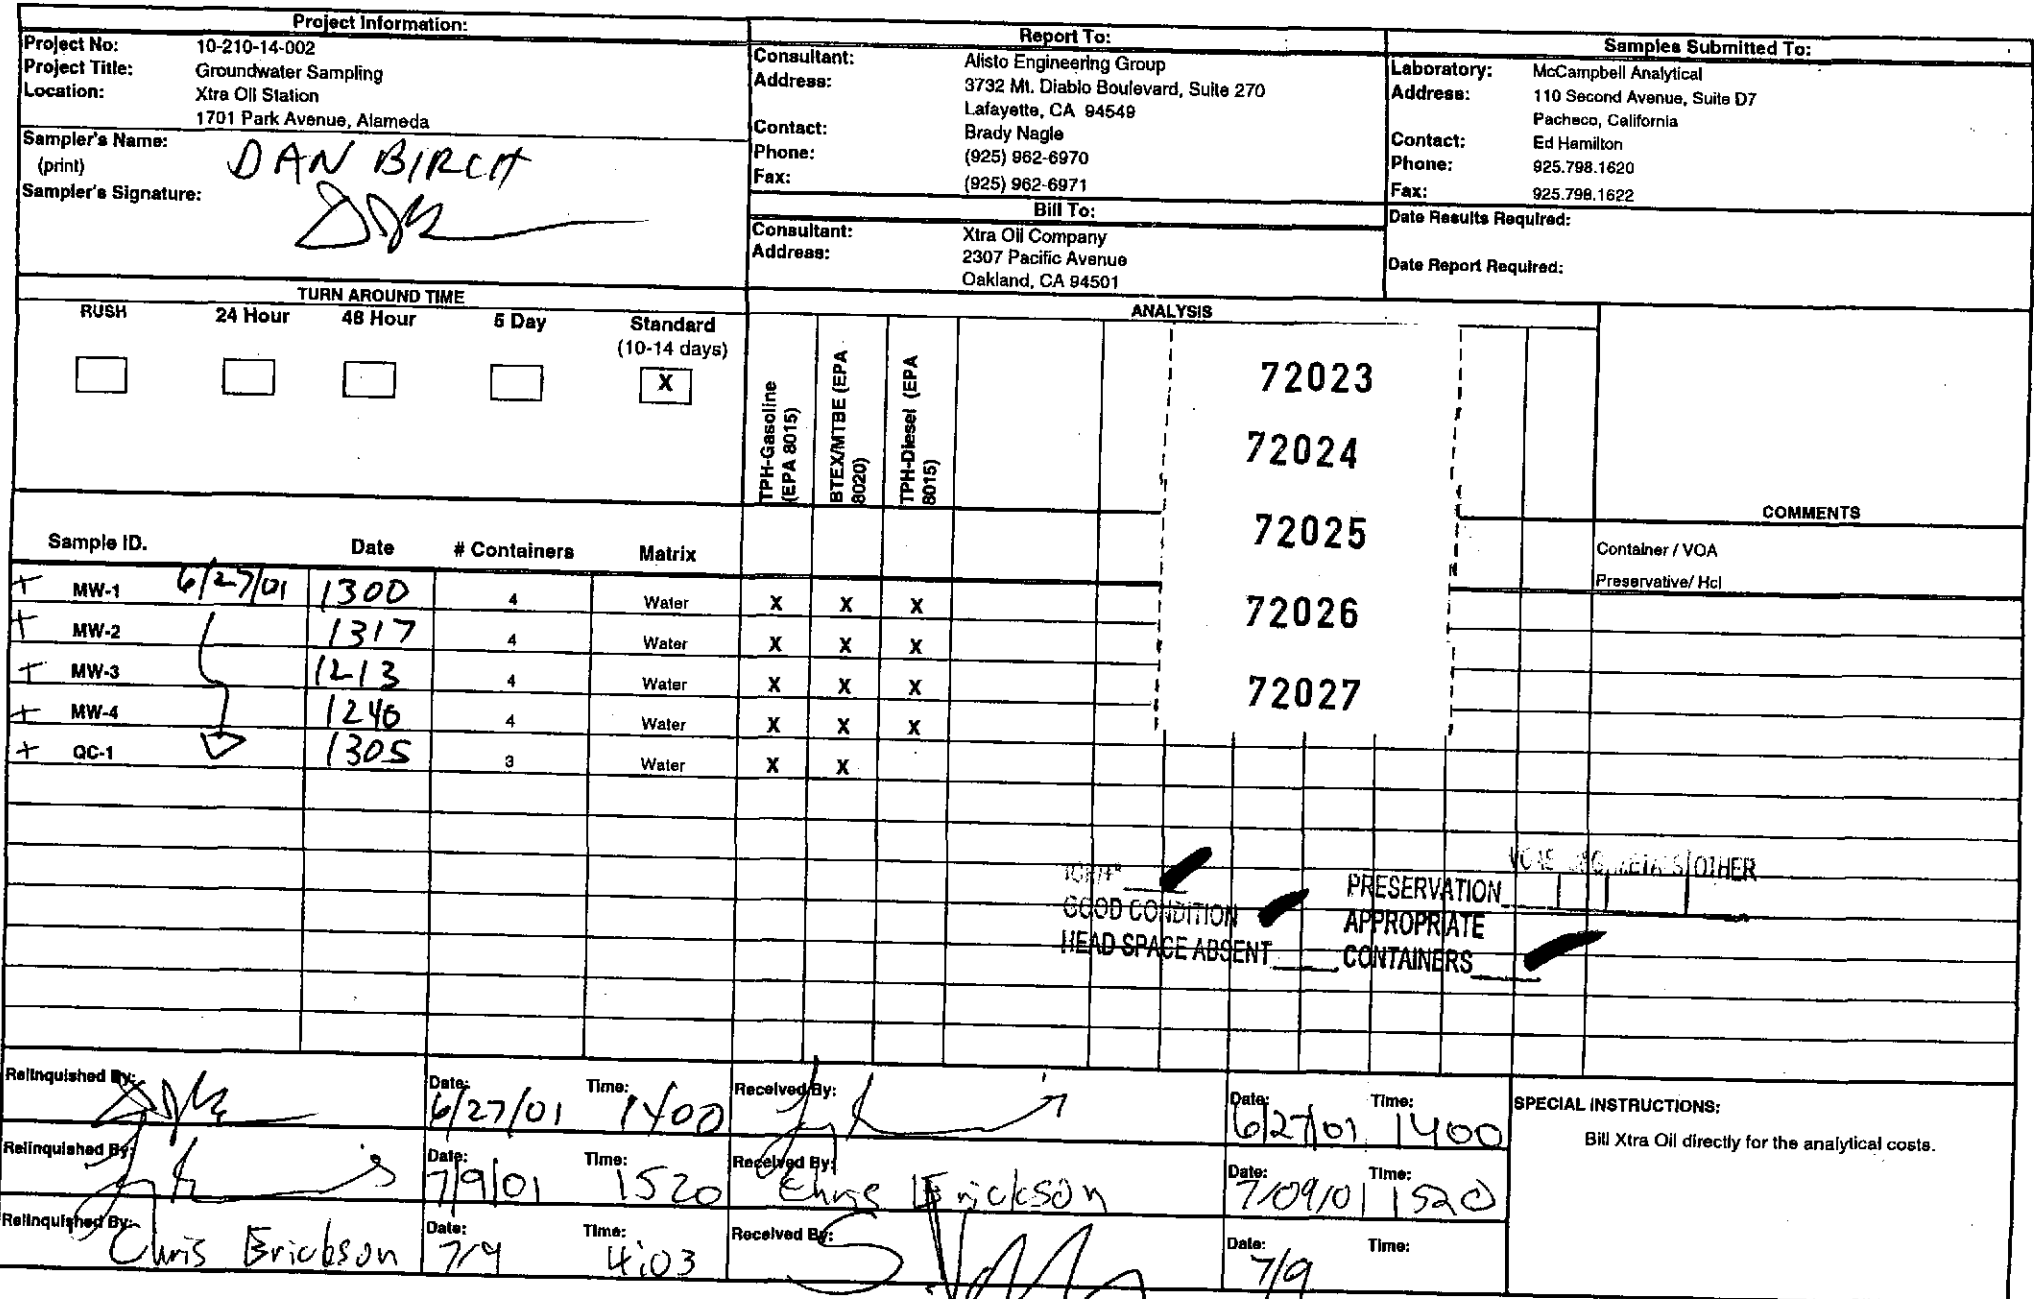 Project Information:
Project No: 10-210-14-002
Project Title: Groundwater Sampling
Location: Xtra Oil Station
1701 Park Avenue, Alameda
Sampler's Name: DAN BIRCH
(print)
Sampler's Signature:
Report To:
Consultant: Alisto Engineering Group
Address: 3732 Mt. Diablo Boulevard, Suite 270
Lafayette, CA 94549
Contact: Brady Nagle
Phone: (925) 962-6970
Fax: (925) 962-6971
Bill To:
Consultant: Xtra Oil Company
Address: 2307 Pacific Avenue
Oakland, CA 94501
Samples Submitted To:
Laboratory: McCampbell Analytical
Address: 110 Second Avenue, Suite D7
Pacheco, California
Contact: Ed Hamilton
Phone: 925.798.1620
Fax: 925.798.1622
Date Results Required:
Date Report Required:
TURN AROUND TIME
RUSH 24 Hour 48 Hour 5 Day Standard
(10-14 days)
X
ANALYSIS
TPH-Gasoline
(EPA 8015)
BTEX/MTBE (EPA
8020)
TPH-Diesel (EPA
8015)
72023
72024
72025
72026
72027
COMMENTS
Container / VOA
Preservative/ Hcl
Sample ID. Date # Containers Matrix
+ MW-1 6/27/01 1300 4 Water X X X
+ MW-2 1317 4 Water X X X
+ MW-3 1213 4 Water X X X
+ MW-4 1240 4 Water X X X
+ QC-1 1305 3 Water X X
GOOD CONDITION
HEAD SPACE ABSENT
OTHER
PRESERVATION
APPROPRIATE
CONTAINERS
Relinquished By: Date: 6/27/01 Time: 1400 Received By: Date: 6/27/01 Time: 1400
Relinquished By: Date: 7/9/01 Time: 1520 Received By: Chris Erickson Date: 7/09/01 Time: 1520
Relinquished By: Chris Erickson Date: 7/9 Time: 4:03 Received By: Date: 7/9 Time:
SPECIAL INSTRUCTIONS:
Bill Xtra Oil directly for the analytical costs.